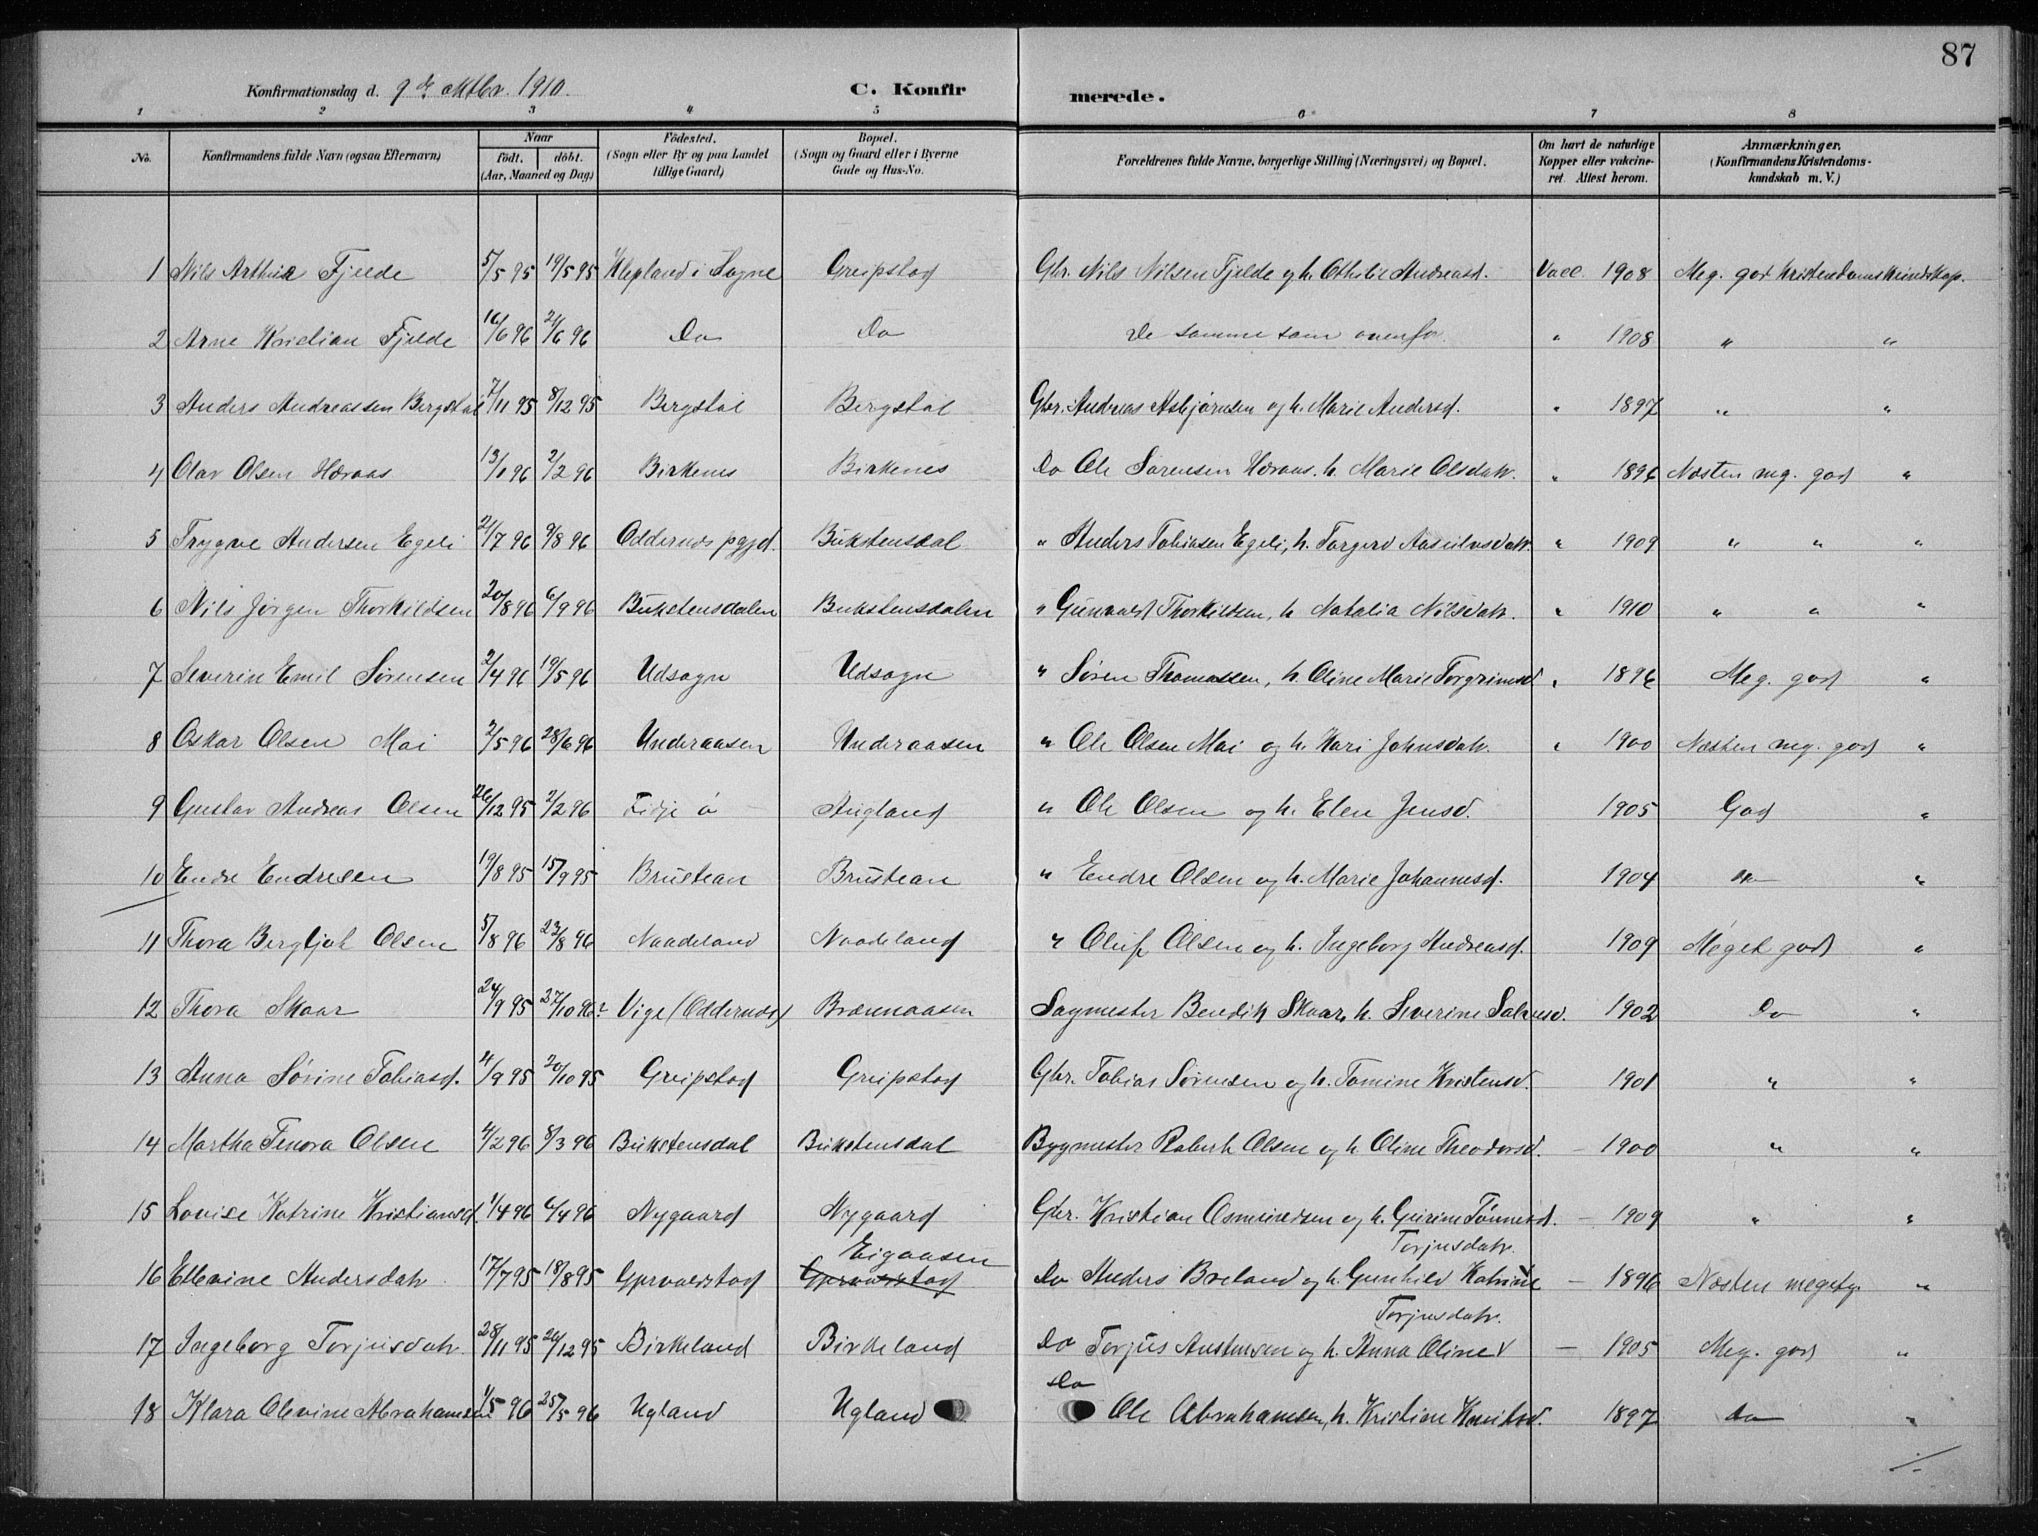 87
Konfirmationsdag d. 9de oktbr. 1910.
C. Konfir merede.
1 2 3 4 5 6 7 8
No. Konfirmandens fulde Navn (ogsaa Efternavn) Naar født. døbt. (Aar, Maaned og Dag) Fødested. (Sogn eller By og paa Landet tillige Gaard) Bopæl. (Sogn og Gaard eller i Byerne Gade og Hus-No. Forældrenes fulde Navne, borgerlige Stilling (Næringsvei) og Bopæl. Om havt de naturlige Kopper eller vakcineret. Attest herom. Anmærkninger. (Konfirmandens Kristendomskundskab m. V.)
1 Nils Arthur Fjelde 5/5 95 19/5 95 Klepland i Søgne Greipstad Gbr. Nils Nilsen Fjelde og h. Othilie Andreasd. Vacc. 1908 Meg. god Kristendomskundskap.
2 Arne Kristian Fjelde 16/6 96 21/6 96 Do Do De samme som ovenfor. " 1908 " "
3 Anders Andreassen Bergstøl 7/11 95 8/12 95 Bergstøl Bergstøl Gbr. Andreas Asbjørnsen og h. Marie Andersd. " 1897 " "
4 Olav Olsen Høraas 13/1 96 2/2 96 Birkenes Birkenes Do Ole Sørensen Høraas. h. Marie Olsdatr. " 1896 Næsten mg. god "
5 Trygve Andersen Egeli 21/7 96 9/8 96 Oddernes pgjd. Bukstensdal " Anders Tobiasen Egeli, h. Torgerd " 1909 " " "
6 Nils Jørgen Thorkildsen 20/8 96 6/9 96 Bukstensdalen Bukstensdalen " Gunvald Thorkildsen, h Natalia Nilsdatr. " 1910 " " "
7 Severin Emil Sørensen 2/4 96 19/5 96 Udsogn Udsogn " Søren Thomassen, h. Oline Marie Torgrimsd. " 1896 Meg. god "
8 Oskar Olsen Moi 2/5 96 28/6 96 Underaasen Underaasen " Ole Olsen Moi og h. Kari Johnsdatr. " 1900 Næsten mg. god "
9 Gustav Andreas Olsen 26/12 95 2/2 96 Fidje ø Augland " Ole Olsen og h. Elen Jensd. 1905 God "
10 Endre Endresen 19/8 95 15/9 95 Brustean Brustean " Endre Olsen og h. Marie Johannesd. 1904 do "
11 Thora Bergljot Olsen 5/8 96 23/8 96 Naadeland Naadeland " Oluf Olsen og h. Ingeborg Andreasd. 1909 Meget god "
12 Thora Skaar 24/9 95 27/10 96? Vige (Oddernes) Brennaasen Sagmester Bendik Skaar, h. Severine Salvesd. 1902 Do "
13 Anna Sørine Tobiasd. 4/9 95 20/10 95 Greipstad Greipstad Gbr. Tobias Sørensen og h. Tomine Kristensd. 1901 " "
14 Martha Tenora Olsen 4/2 96 8/3 96 Bukstensdal Bukstensdal Bygmester Robert Olsen og h. Oline Theodorsd. — 1900 " "
15 Lovise Katrine Kristiansd. 1/4 96 6/4 96 Nygaard Nygaard Gbr. Kristian Osmundsen og h. Gurine Tønnesd. — 1909 " "
Eigaasen Torjusdatr.
16 Ellevine Andersdatr 17/7 95 18/8 95 Gprvoldstad Gprvoldstad Do Anders Breland og h. Gunhild Katrine — 1896 Næsten meget g. "
Torjusdatr.
17 Ingeborg Torjusdatr. 28/11 95 26/12 95 Birkeland Birkeland Do Torjus Austensen og h. Anna Oline v — 1905 Meg. god "
Do
18 Klara Olevine Abrahamsen 1/5 96 25/5 96 Ugland Ugland Ole Abrahamsen, h. Kristine Knutsd. 1897 Do "